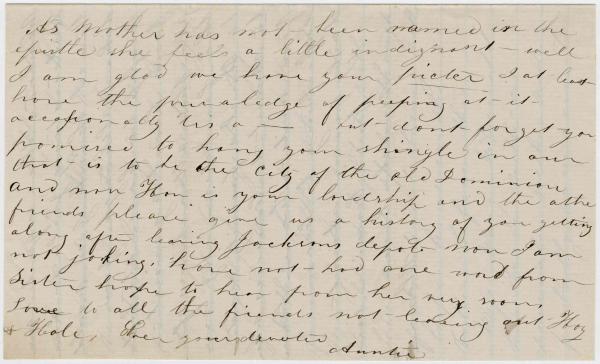 As Mother has not been named in the
epistle she feels a little indignant - well
I am glad we have your picter I at least
have the privaledge of peeping at it
occasionally tis a — but dont forget you
promised to hang your shingle in our
that is to be the city of the old Dominion
and now How is your lordship and the othe
friends please give us a history of you getting
along after leaving Jacksons depot now I am
not joking, have not had one word from
Sister hope to hear from her very soon
Love to all the friends not leaving out Hoy
& Kate, Ever your devoted
Auntie